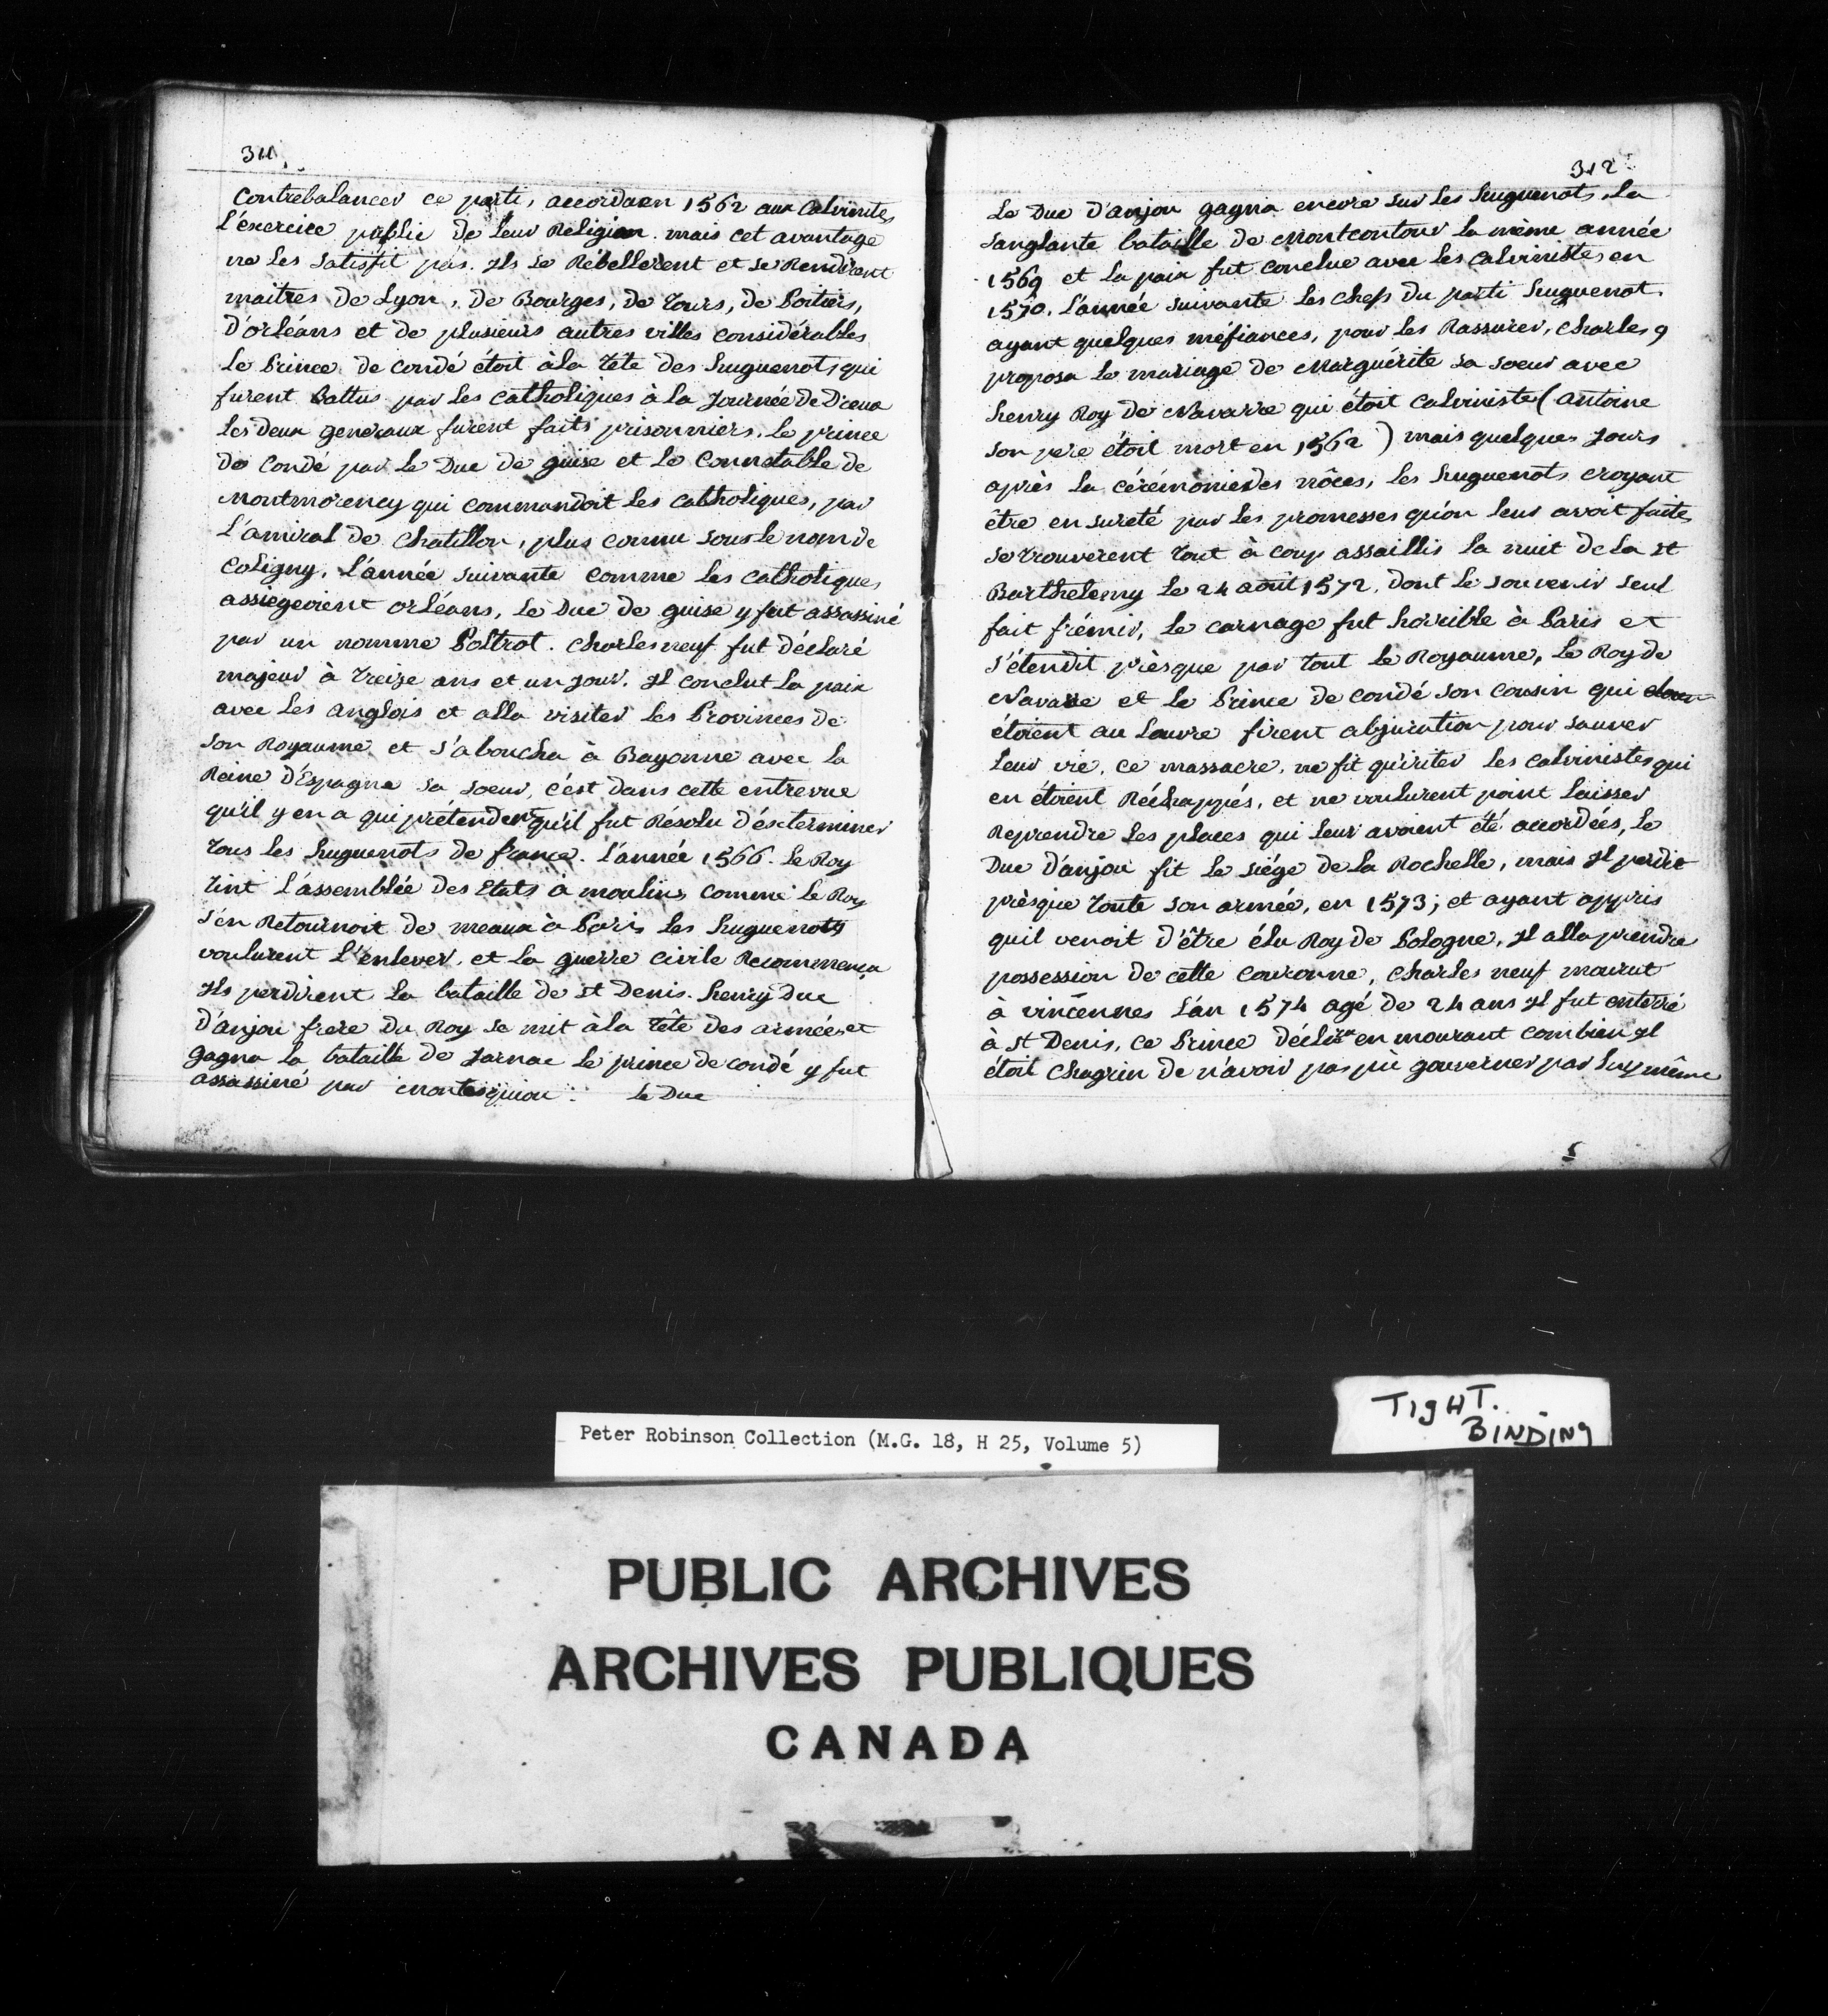 311.
contrebalancer ce parti, accorda en 1562 aux Calvinites
L'éxercice public de leur Réligion. mais cet avantage
ne les satisfit pas. Ils se Rébellerent et se Rendirent
maitres de Lyon, de Bourges, de Tours, de Poitiers,
D'orléans et de plusieurs autres villes considérables
Le Prince de condé étoit à la tete des huguenots qui
furent battus par les catholiques à la Journée de Dreux
Les deux generaux furent faits prisonniers. le prince
de Condé par le Duc de guise et le Connetable de
Montmorency qui commandoit les catholiques, par
L'amiral de Chatillon, plus connu sous le nom de
Coligny. L'année suivante comme les catholiques
assiégeoient orléans, le Duc de guise y fut assassiné
par un nomme Poltrot. Charles neuf fut déclaré
majeur à treize ans et un jour. Il conclut la paix
avec les anglois et alla visiter les Provinces de
son Royaume et s'aboucha à Bayonne avec la
Reine d'Espagne sa soeur, c'est dans cette entrevue
qu'il y en a qui prétendent qu'il fut Résolu d'éxterminer
tous les huguenots de france. l'année 1566. le Roy
tint l'assemblée des Etats à moulins comme le Roy
s'en Retournoit de meaux à Paris les huguenots
voulurent l'enlever, et la guerre civile Recommença
Ils perdirent la bataille de st Denis. henry Duc
d'anjou frere du Roy se mit à la tête des armées et
gagna la bataille de Jarnac le prince de condé y fut
assassiné par montesquiou. Le Duc
312
Le Duc d'anjou gagna encore sur les huguenots. La
sanglante bataille de Montcontour la même année
1569 et la paix fut conclue avec les calvinistes en
1570. L'année suivante les chefs du parti huguenot
ayant quelques méfiances, pour les Rassurer, Charles 9
proposa le mariage de Marguérite sa soeur avec
henry Roy de Navarre qui étoit calviniste (antoine
son pere étoit mort en 1562) mais quelques jours
après la cérémonie des nôces, les huguenots croyant
être en sureté par les promesses qu'on leur avoit faites
se trouverent tout à coup assaillis la nuit de la st
Barthelemy le 24 août 1572. dont le souvenir seul
fait frémir, le carnage fut horrible à Paris et
s'étendit prèsque par tout le Royaume, le Roy de
Navarre et le Prince de condé son cousin qui
étoient au Louvre firent abjuration pour sauver
leur vie. ce massacre. ne fit qu'iriter les calvinistes qui
en étoient Réchappés, et ne voulurent point laisser
Reprendre les places qui leur avoient été accordées, le
Duc d'anjou fit le siége de la Rochelle, mais Il perdit
prèsque toute son armée, en 1573; et ayant appris
quil venoit d'être élu Roy de Pologne, Il alla prendre
possession de cette couronne, charles neuf mourut
à vincennes l'an 1574 agé de 24 ans Il fut enterré
à st Denis, ce Prince déclara en mourant combien Il
étoit chagrin de n'avoir pas pû gouverner par luy même
5
TIGHT.
BINDING
Peter Robinson Collection (M.G. 18, H 25, Volume 5)
PUBLIC ARCHIVES
ARCHIVES PUBLIQUES
CANADA